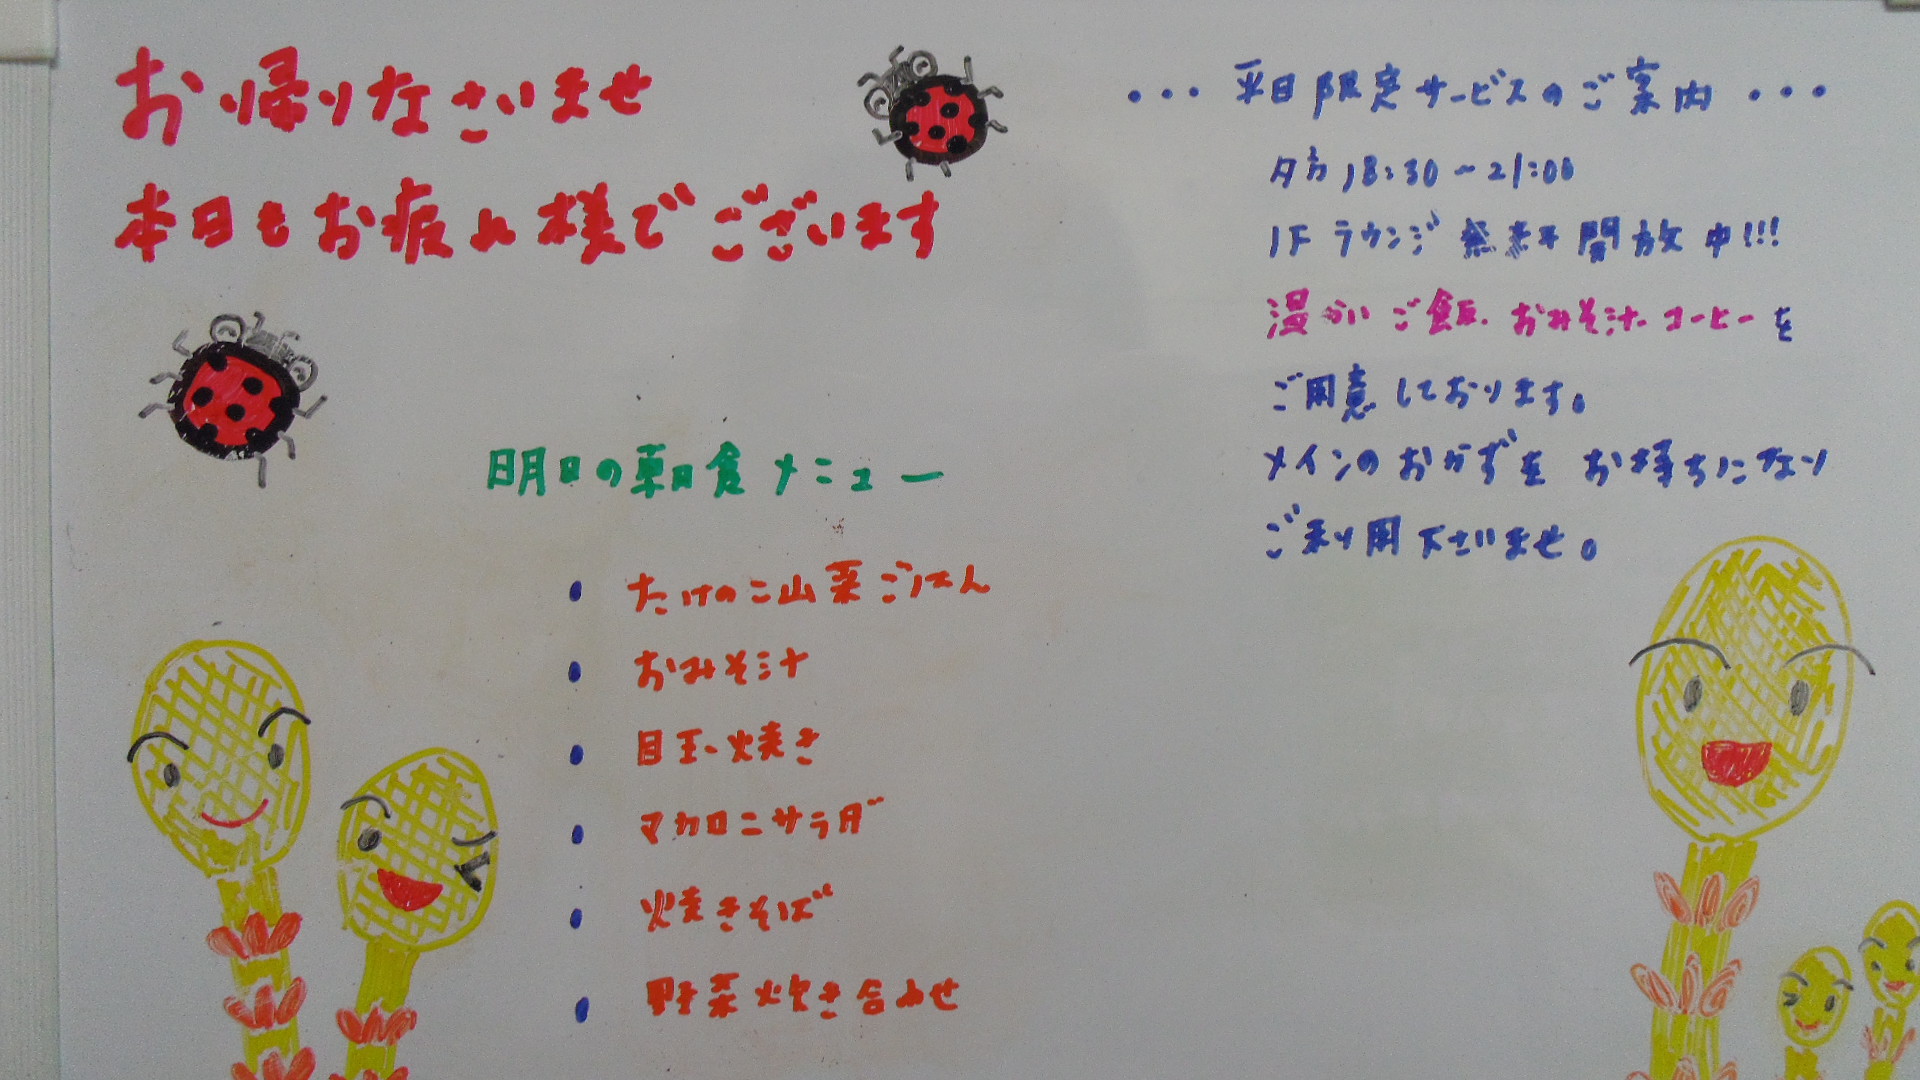 お帰りなさいませ
本日もお疲れ様でございます
明日の朝食メニュー
・ たけのこ山菜ごはん
・ おみそ汁
・ 目玉焼き
・ マカロニサラダ
・ 焼きそば
・ 野菜炊き合わせ
・・・ 平日限定サービスのご案内 ・・・
夕方 18:30〜21:00
1Fラウンジ 無料開放中!!!
温かいご飯、おみそ汁、コーヒーを
ご用意しております。
メインのおかずを お持ちになり
ご利用下さいませ。